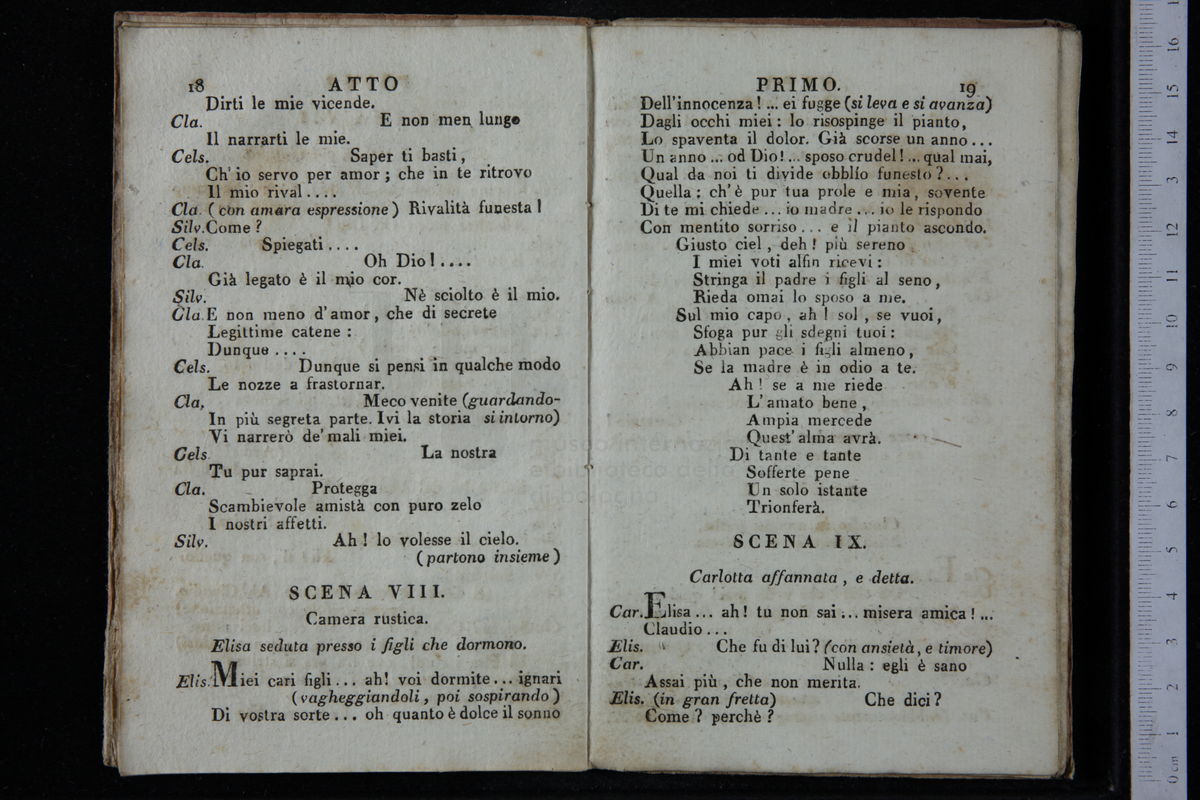 18 ATTO
Dirti le mie vicende.
Cla. E non men lungo
Il narrarti le mie.
Cels. Saper ti basti,
Ch' io servo per amor; che in te ritrovo
Il mio rival....
Cla. (con amara espressione) Rivalità funesta!
Silv. Come?
Cels. Spiegati....
Cla. Oh Dio!....
Già legato è il mio cor.
Silv. Nè sciolto è il mio.
Cla. E non meno d'amor, che di secrete
Legittime catene:
Dunque....
Cels. Dunque si pensi in qualche modo
Le nozze a frastornar.
Cla, Meco venite (guardando-
In più segreta parte. Ivi la storia si intorno)
Vi narrerò de' mali miei.
Cels La nostra
Tu pur saprai.
Cla. Protegga
Scambievole amistà con puro zelo
I nostri affetti.
Silv. Ah! lo volesse il cielo.
(partono insieme)
SCENA VIII.
Camera rustica.
Elisa seduta presso i figli che dormono.
Elis. Miei cari figli... ah! voi dormite... ignari
(vagheggiandoli, poi sospirando)
Di vostra sorte... oh quanto è dolce il sonno
PRIMO. 19
Dell'innocenza!... ei fugge (si leva e si avanza)
Dagli occhi miei: lo risospinge il pianto,
Lo spaventa il dolor. Già scorse un anno...
Un anno... od Dio!... sposo crudel!... qual mai,
Qual da noi ti divide obblío funesto?...
Quella: ch' è pur tua prole e mia, sovente
Di te mi chiede... io madre... io le rispondo
Con mentito sorriso... e il pianto ascondo.
Giusto ciel, deh! più sereno
I miei voti alfin ricevi:
Stringa il padre i figli al seno,
Rieda omai lo sposo a me.
Sul mio capo, ah! sol, se vuoi,
Sfoga pur gli sdegni tuoi:
Abbian pace i figli almeno,
Se la madre è in odio a te.
Ah! se a me riede
L' amato bene,
Ampia mercede
Quest' alma avrà.
Di tante e tante
Sofferte pene
Un solo istante
Trionferà.
SCENA IX.
Carlotta affannata, e detta.
Car. Elisa... ah! tu non sai... misera amica!...
Claudio...
Elis. Che fu di lui? (con ansietà, e timore)
Car. Nulla: egli è sano
Assai più, che non merita.
Elis. (in gran fretta) Che dici?
Come? perchè?